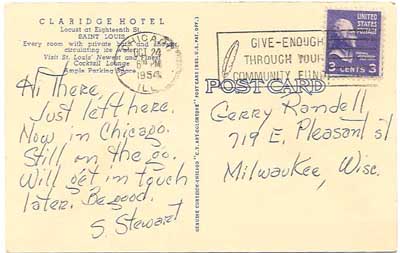 CLARIDGE HOTEL
Locust at Eighteenth St.
SAINT LOUIS
Every room with private bath and
circulating ice water
Visit St. Louis' Newest and Finest
Cocktail Lounge
Ample Parking Space
CHICAGO
OCT 24
PM
1954
ILL.
GIVE-ENOUGH
THROUGH YOUR
COMMUNITY FUND
UNITED STATES
POSTAGE
3 CENTS 3
POST CARD
Hi There,
Just left here.
Now in Chicago.
Still on the go.
Will get in touch
later. Be good.
S. Stewart
Gerry Randell
719 E. Pleasant st
Milwaukee, Wisc.